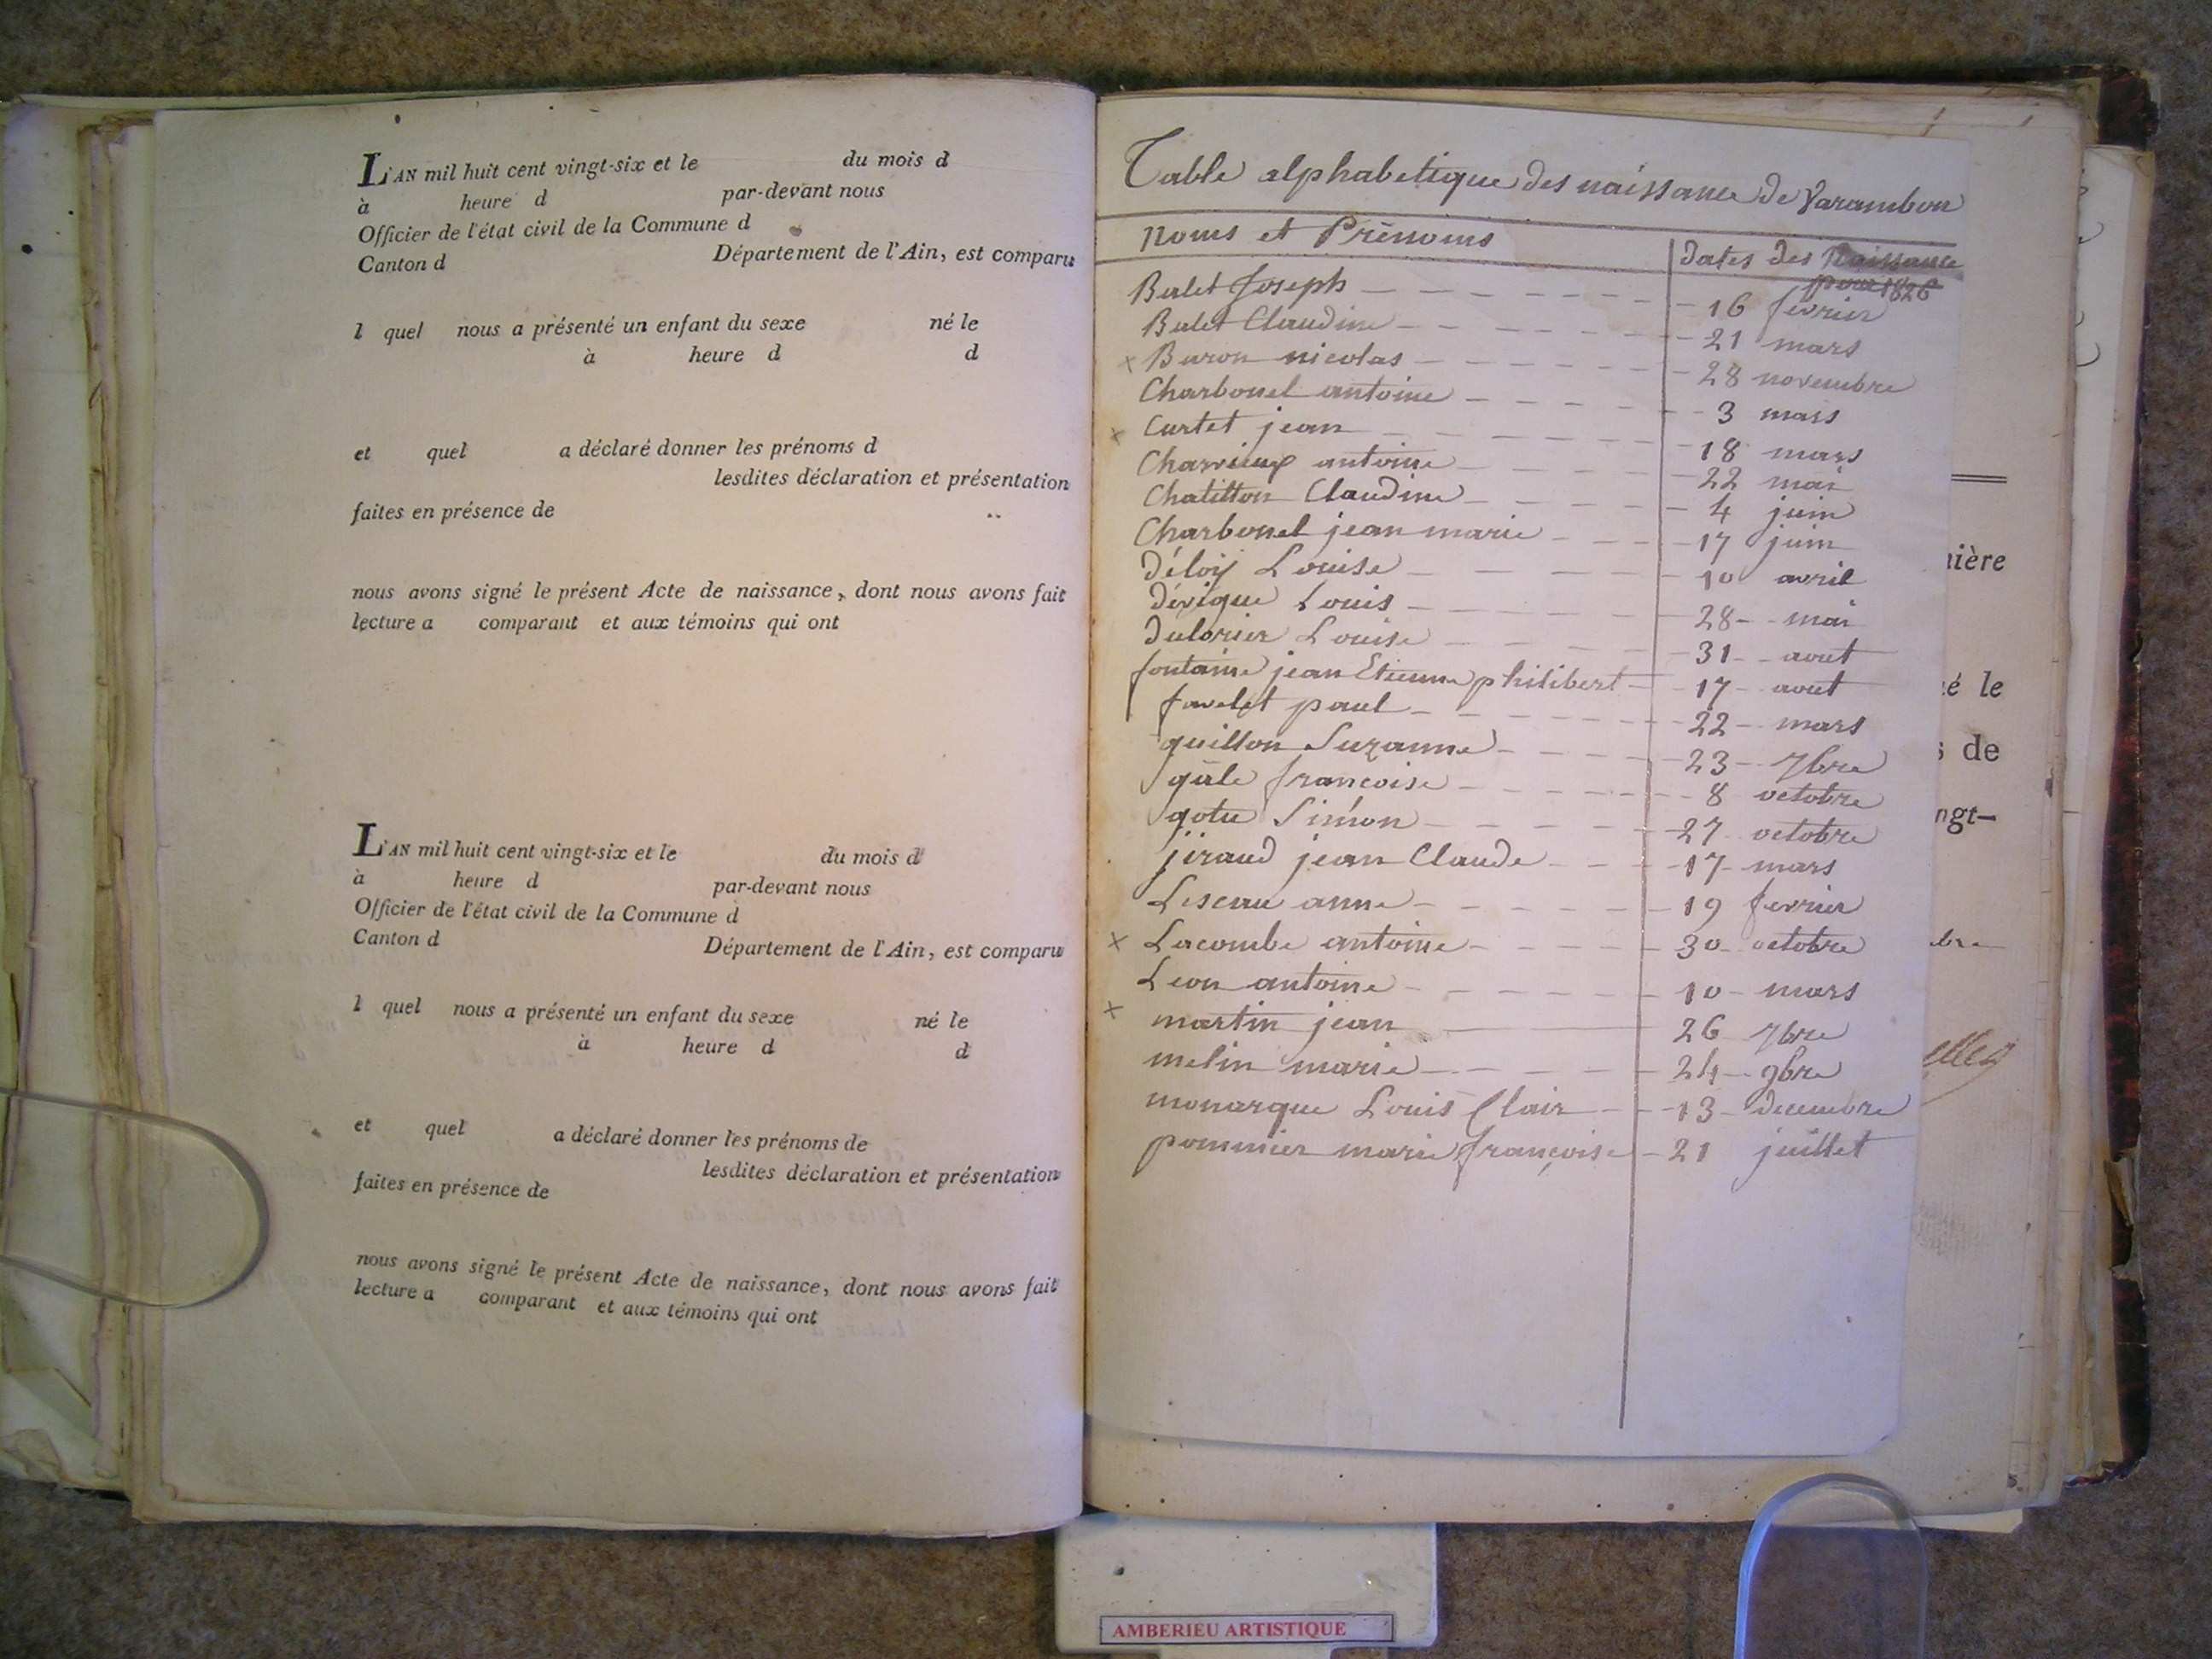 L'AN mil huit cent vingt-six et le du mois d
à heure d par-devant nous
Officier de l'état civil de la Commune d
Canton d Département de l'Ain, est comparu
l quel nous a présenté un enfant du sexe né le
à heure d d
et quel a déclaré donner les prénoms d
lesdites déclaration et présentation
faites en présence de
nous avons signé le présent Acte de naissance, dont nous avons fait
lecture a comparant et aux témoins qui ont
L'AN mil huit cent vingt-six et le du mois d
à heure d par-devant nous
Officier de l'état civil de la Commune d
Canton d Département de l'Ain, est comparu
l quel nous a présenté un enfant du sexe né le
à heure d d
et quel a déclaré donner les prénoms de
lesdites déclaration et présentation
faites en présence de
nous avons signé le présent Acte de naissance, dont nous avons fait
lecture a comparant et aux témoins qui ont
Table alphabetique des naissance de Varambon
Noms et Prénoms Dates des Naissance
pour 1826
Bulet Joseph 16 février
Bulet Claudine 21 mars
x Buron nicolas 28 novembre
Charbonel antoine 3 mars
x Curtet jean 18 mars
Charvieux antoine 22 mai
Chatillon Claudine 4 juin
Charbonel jean marie 17 juin
Déloy Louise 10 avril
Dévigue Louis 28 mai
Dulorier Louise 31 aout
fontaine jean Etienne philibert 17 aout
favelet paul 22 mars
guillon Suzanne 23 7bre
gâle francoise 8 octobre
gotu Simon 27 octobre
jiraud jean Claude 17 mars
Leseau anne 19 fevrier
x Lacombe antoine 30 octobre
Leon antoine 10 mars
x martin jean 26 7bre
melin marie 24 9bre
monarque Louis Clair 13 decembre
pommier marie françoise 21 juillet
nière
é le
s de
ngt-
bre
AMBERIEU ARTISTIQUE